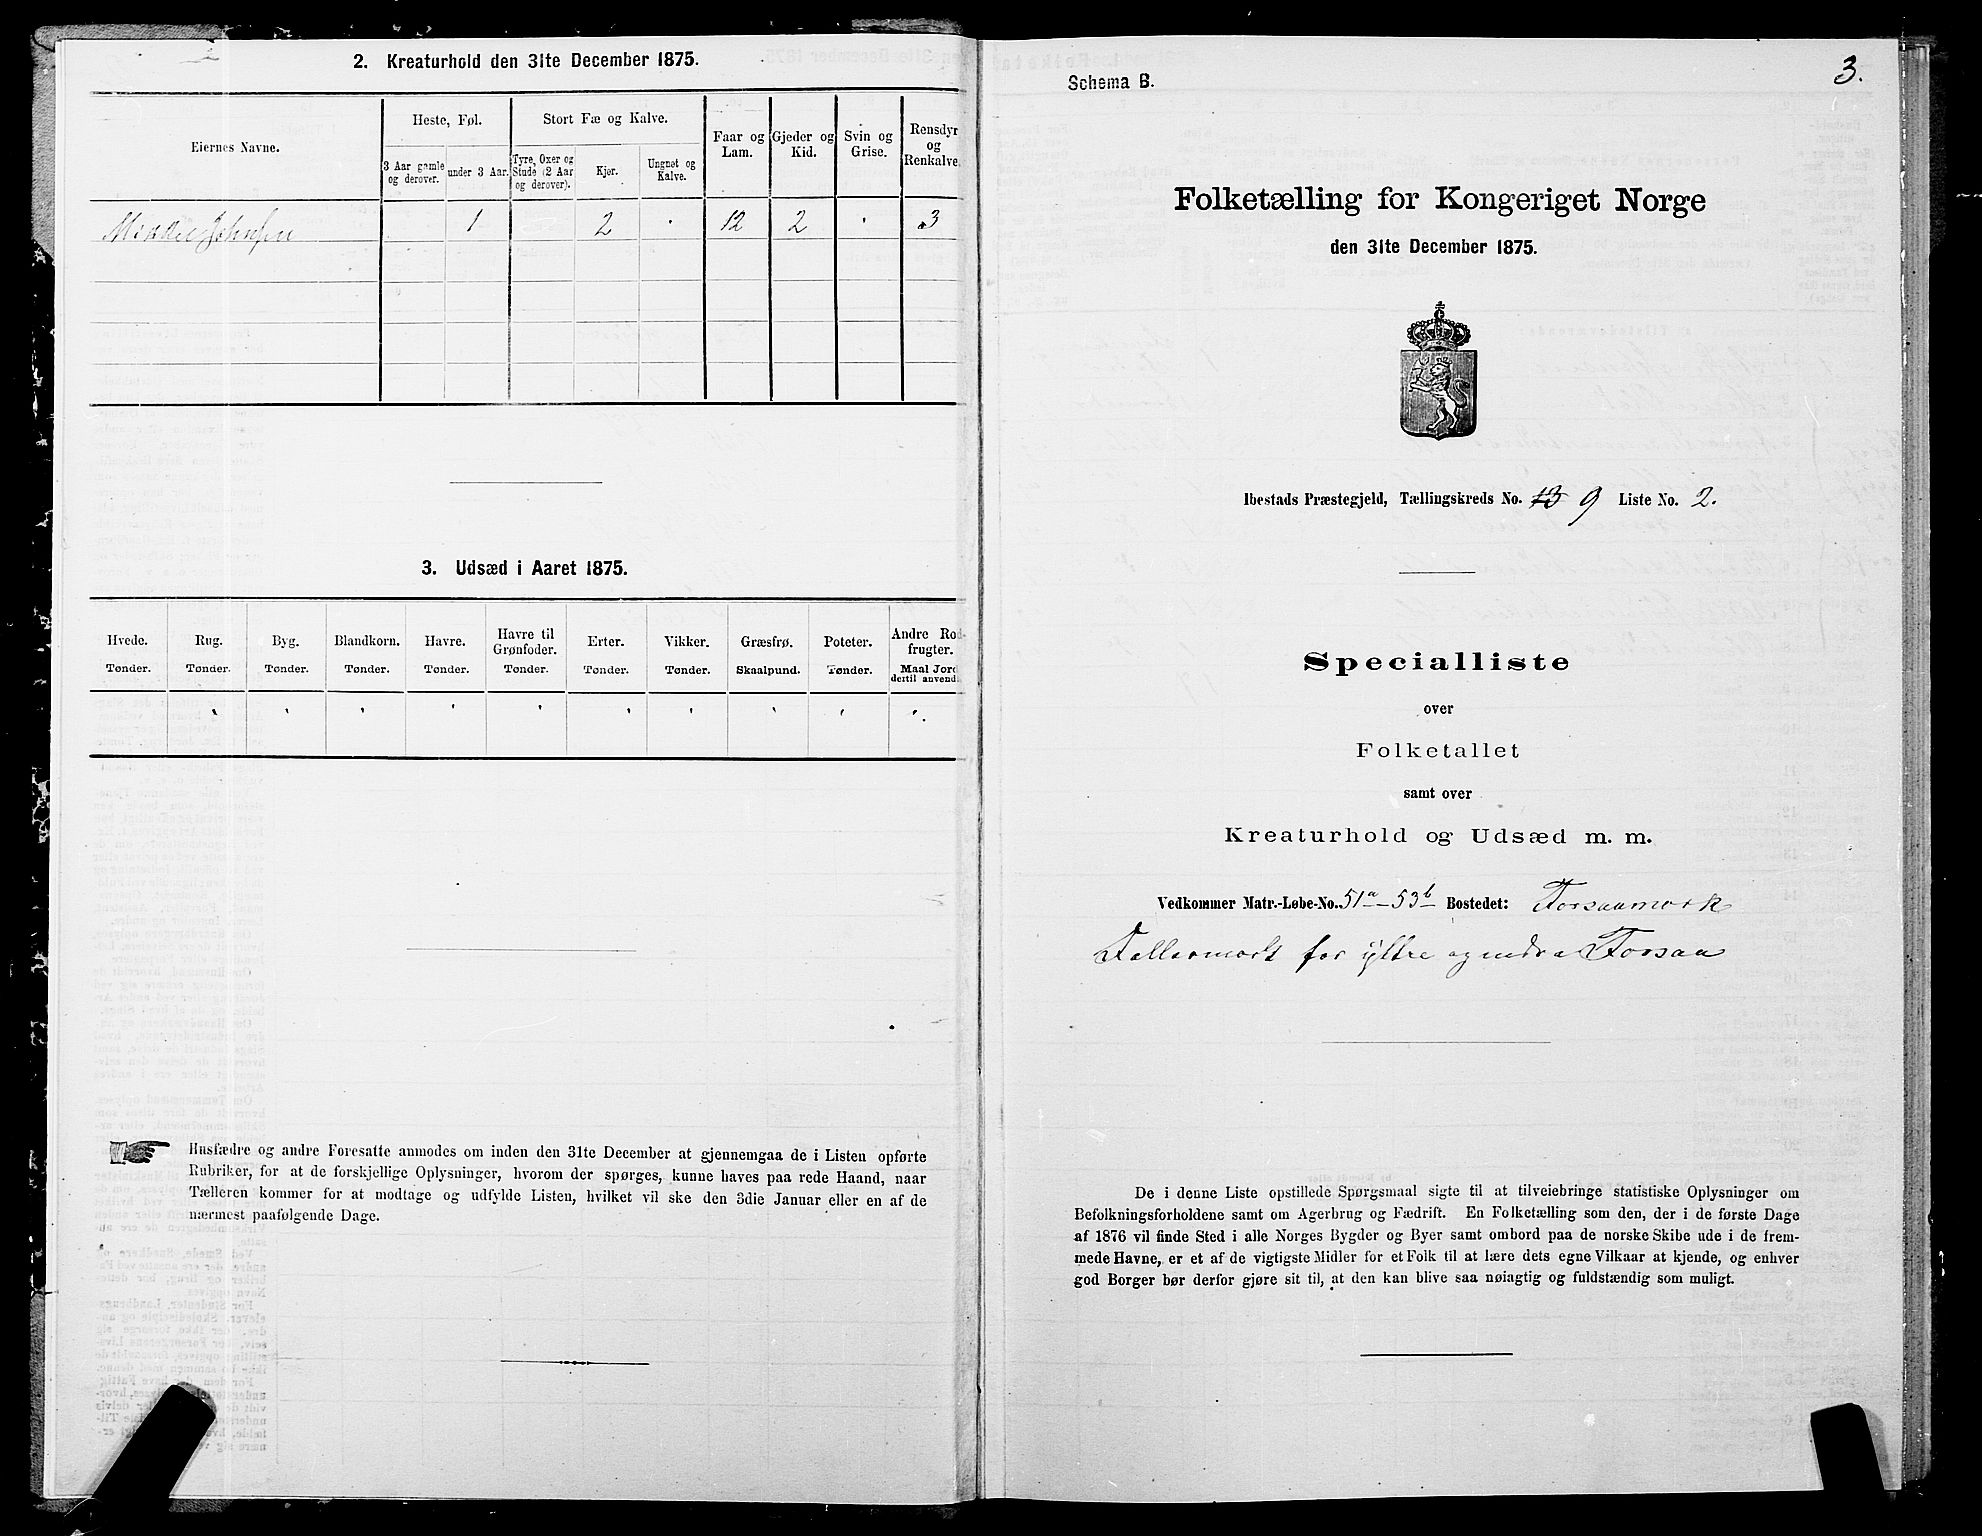 2. Kreaturhold den 31te December 1875.
Eiernes Navne.
Heste, Føl.
Stort Fæ og Kalve.
Faar og Lam.
Gjeder og Kid.
Svin og Grise.
Rensdyr og Renkalve.
3 Aar gamle og derover.
under 3 Aar.
Tyre, Oxer og Stude (2 Aar og derover).
Kjør.
Ungnøt og Kalve.
Mikkel Johnsen 1 2 12 2 3
3. Udsæd i Aaret 1875.
Hvede. Tønder.
Rug. Tønder.
Byg. Tønder.
Blandkorn. Tønder.
Havre. Tønder.
Havre til Grønfoder. Tønder.
Erter. Tønder.
Vikker. Tønder.
Græsfrø. Skaalpund.
Poteter. Tønder.
Andre Rodfrugter. Maal Jord dertil anvend
Husfædre og andre Foresatte anmodes om inden den 31te December at gjennemgaa de i Listen opførte
Rubriker, for at de forskjellige Oplysninger, hvorom der spørges, kunne haves paa rede Haand, naar
Tælleren kommer for at modtage og udfylde Listen, hvilket vil ske den 3die Januar eller en af de
nærmest paafølgende Dage.
3.
Schema B.
Folketælling for Kongeriget Norge
den 31te December 1875.
Ibestads Præstegjeld, Tællingskreds No. 13 9 Liste No. 2.
Specialliste
over
Folketallet
samt over
Kreaturhold og Udsæd m. m.
Vedkommer Matr.-Løbe-No. 51a-53b Bostedet: Forsaamark
Fællesmark for yttre og indre Forsaa
De i denne Liste opstillede Spørgsmaal sigte til at tilveiebringe statistiske Oplysninger om
Befolkningsforholdene samt om Agerbrug og Fædrift. En Folketælling som den, der i de første Dage
af 1876 vil finde Sted i alle Norges Bygder og Byer samt ombord paa de norske Skibe ude i de frem-
mede Havne, er et af de vigtigste Midler for et Folk til at lære dets egne Vilkaar at kjende, og enhver
god Borger bør derfor gjøre sit til, at den kan blive saa nøiagtig og fuldstændig som muligt.